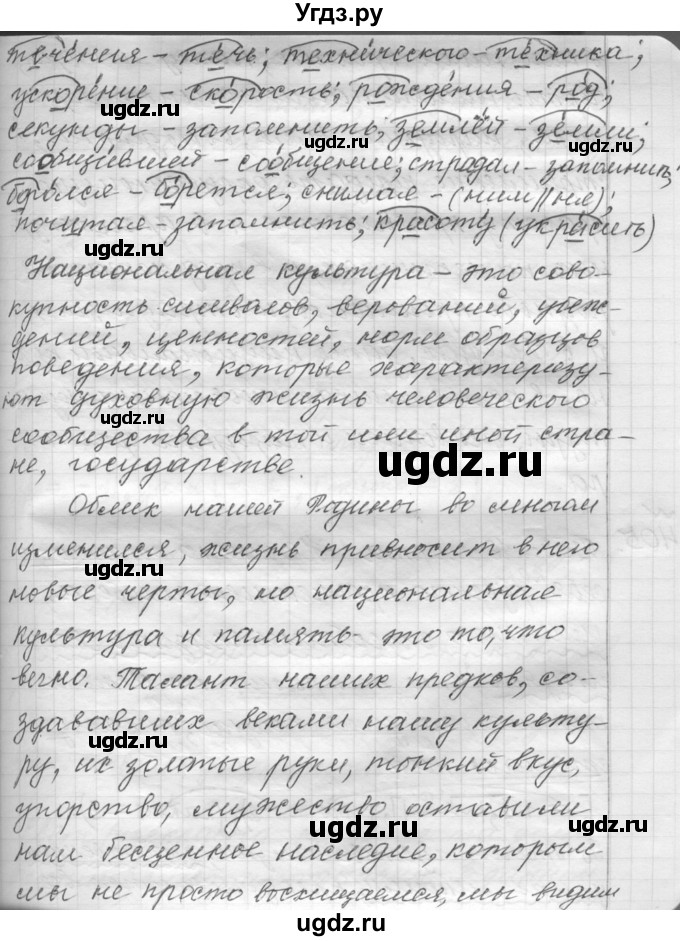 Угдз.ру
тече́ния – те́чь; техни́ческого – те́хника;
ускоре́ние – ско́рость; рожде́ния – ро́д;
секунды – запомнить; землёй – зе́мли;
сообщи́вшей – сообще́ние; страдал – запомнить;
боро́лся – бо́рется; снимая – (ним//ня);
почитал – запомнить; красоту́ (укра́сить)
Национальная культура – это сово-
купность символов, верований, убеж-
дений, ценностей, норм образцов
поведения, которые характеризу-
ют духовную жизнь человеческого
сообщества в той или иной стра-
не, государстве.
Облик нашей Родины во многом
изменился, жизнь привносит в него
новые черты, но национальная
культура и память – это то, что
вечно. Талант наших предков, со-
здававших веками нашу культу-
ру, их золотые руки, тонкий вкус,
упорство, мужество оставили
нам бесценное наследие, которым
мы не просто восхищаемся, мы видим
ugdz.ru
ugdz.ru
ugdz.ru
ugdz.ru
ugdz.ru
ugdz.ru
ugdz.ru
ugdz.ru
ugdz.ru
ugdz.ru
ugdz.ru
ugdz.ru
ugdz.ru
ugdz.ru